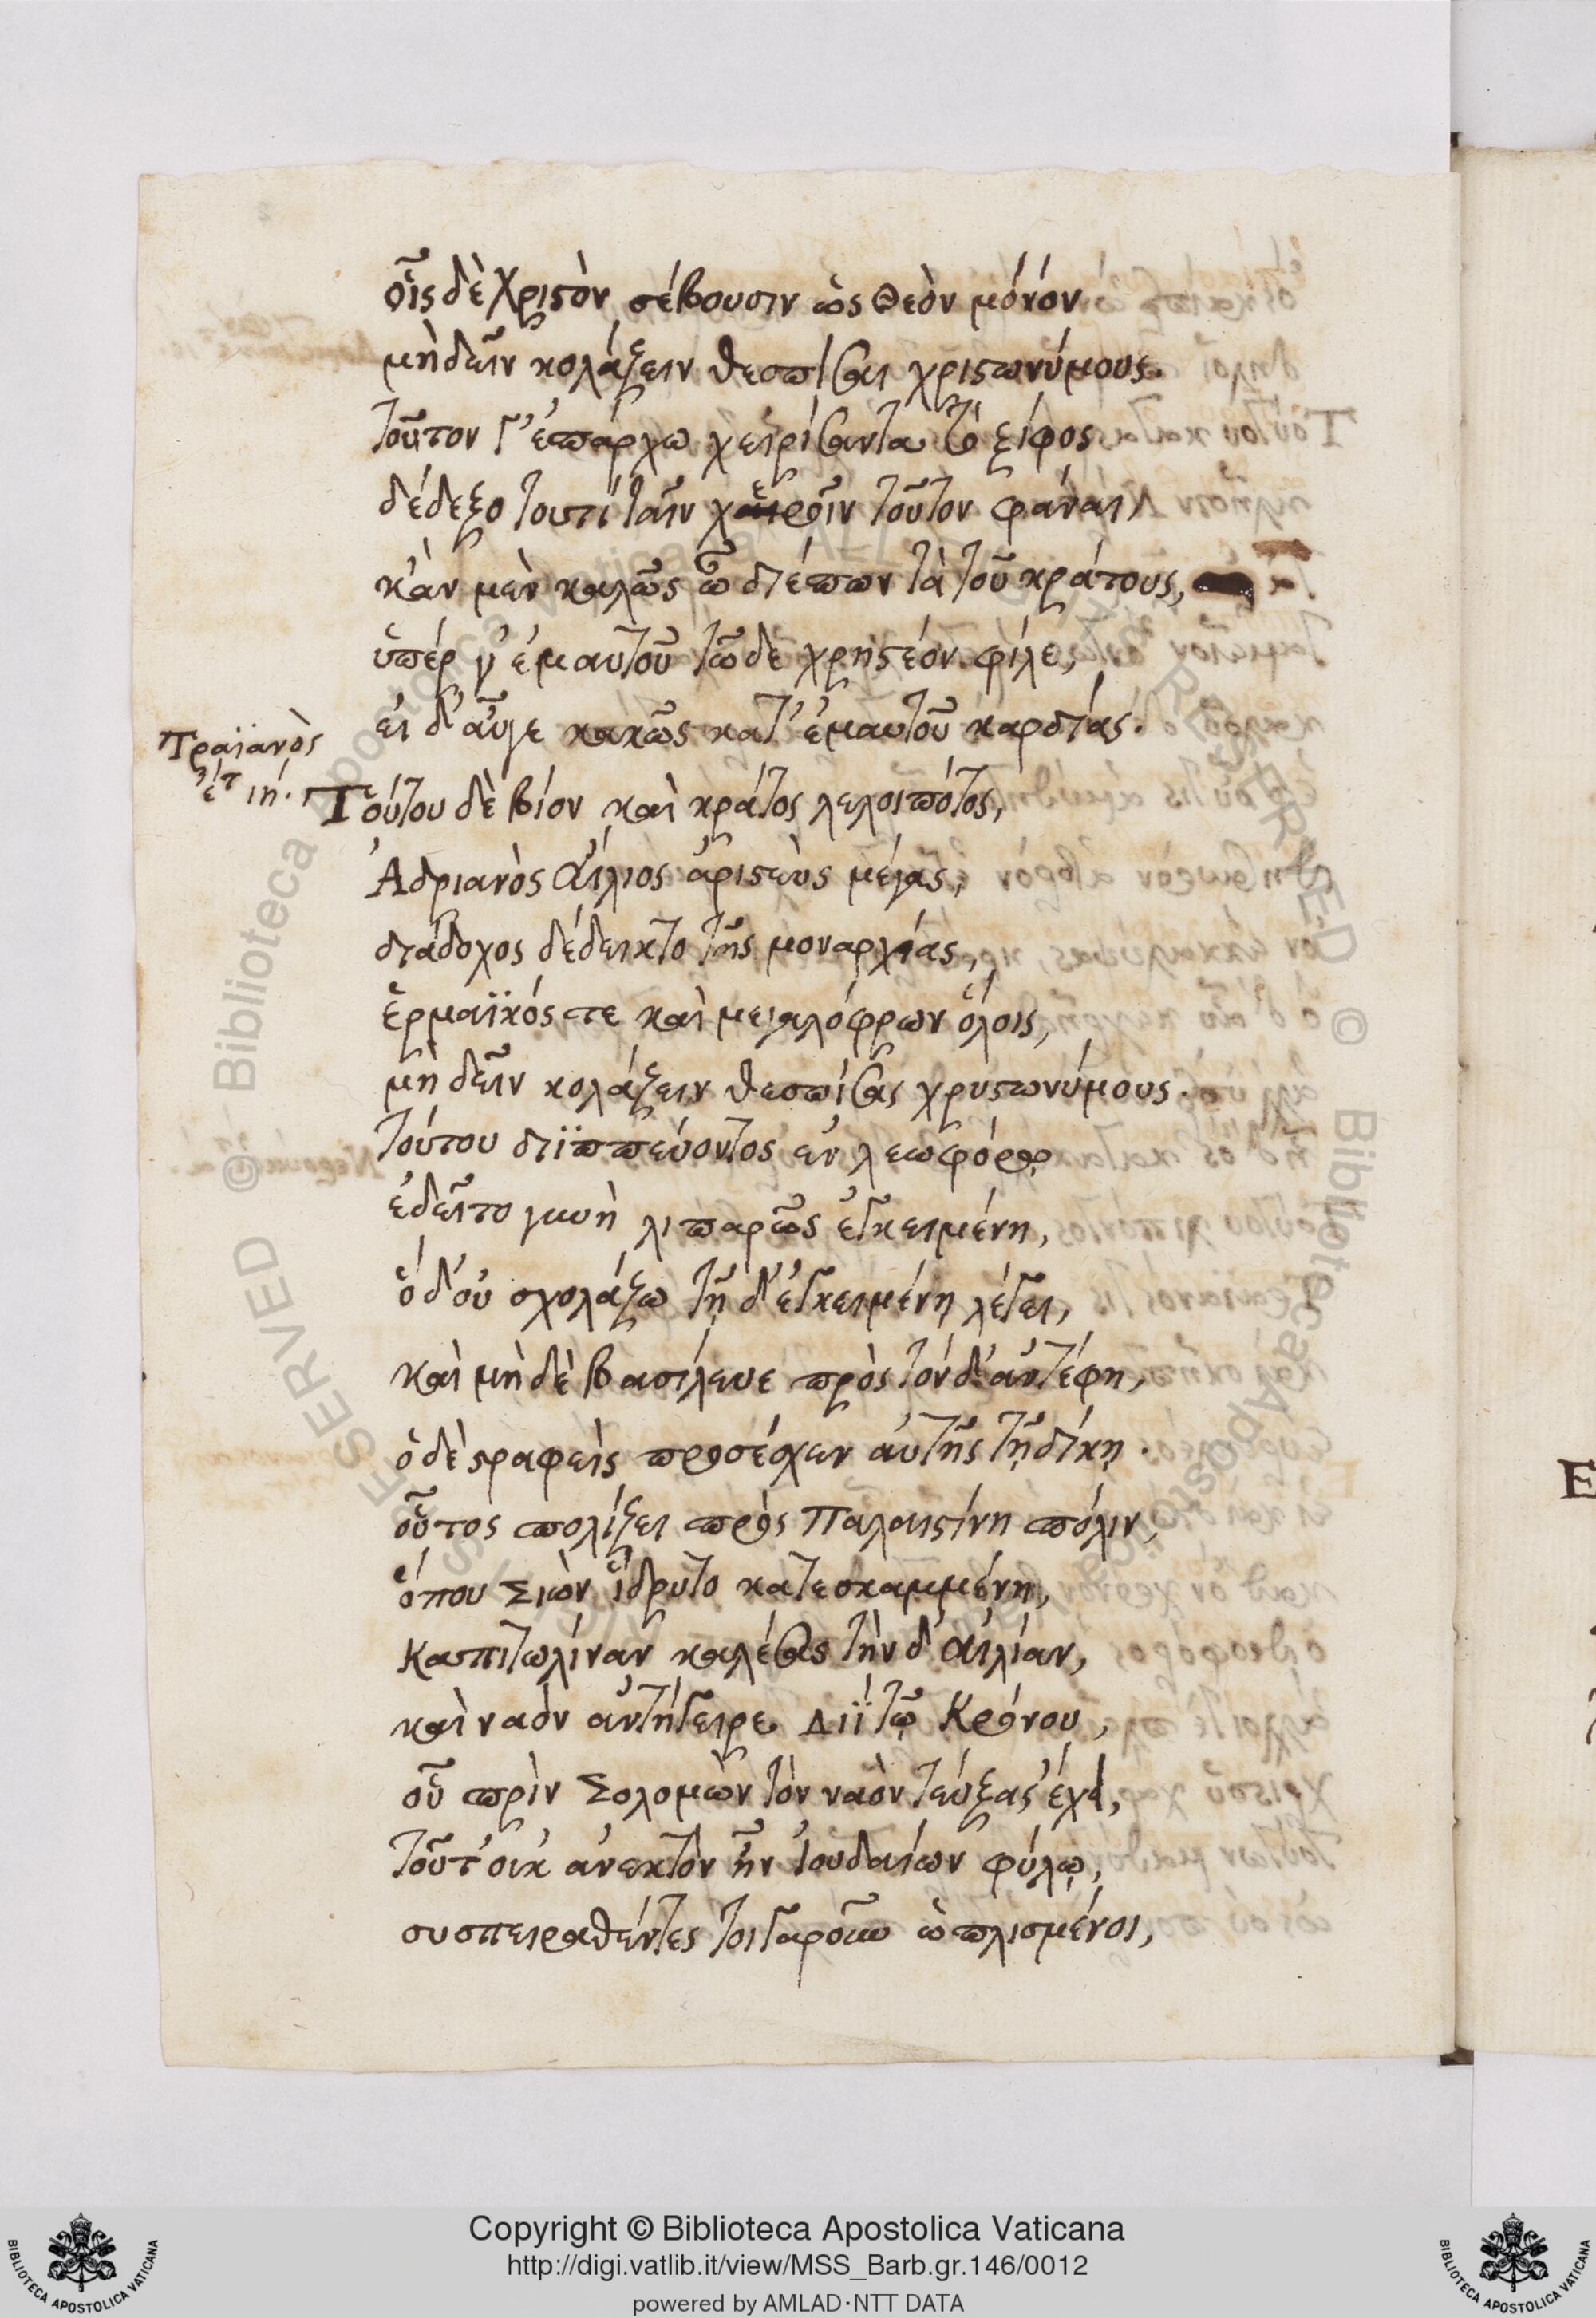 οἷς δὲ Χριστὸν σέβουσιν ὡς Θεὸν μόνον
μὴ δεῖν κολάζειν θεσπίσαι χριστωνύμους.
τοῦτον γ' ἐπάρχω χειρίσαντα τὸ ξίφος
δέδεξο τουτί ταῖν χεροῖν τοῦτον φάναι,
κἂν μὲν καλῶς ὦ διέπων τὰ τοῦ κράτους,
ὑπέρ γ' ἐμαυτοῦ τῶδε χρηστέον φίλε,
εἰ δ' αὖγε κακῶς κατ' ἐμαυτοῦ καρδίας.
Τραϊανὸς
ἔτ ιη.
Τούτου δὲ βίον καὶ κράτος λελοιπότος,
Ἀδριανὸς Αἴλιος ἀριστεὺς μέγας,
διάδοχος δέδεικτο τῆς μοναρχίας,
ἑρμαϊκός τε καὶ μεγαλόφρων ὅλοις,
μὴ δεῖν κολάζειν θεσπίσας χρυστωνύμους.
τούτου διϊππεύοντος ἐν λεωφόρῳ
ἐδεῖτο γυνὴ λιπαρῶς ἐγκειμένη,
ὁ δ' οὐ σχολάζω τῇ δ' ἐγκειμένῃ λέγει,
καὶ μὴ δὲ βασίλευε πρὸς τόνδ' ἀντέφη,
ὁ δὲ στραφεὶς προσέσχεν αὐτῆς τῇ δίκῃ.
οὗτος πολίζει πρὸς Παλαιστίνη πόλιν,
ὅπου Σιὼν ἵδρυτο κατεσκαμμένη,
Καπιτωλίναν καλέσας τὴν δ' Αἰλίαν,
καὶ ναὸν ἀντήγειρε Διῒ τῷ Κρόνου,
οὗ πρὶν Σολομὼν τὸν ναὸν τεύξας ἔχει,
τοῦτ' οὐκ ἀνεκτὸν ἦν Ἰουδαίων φύλῳ,
συσπειραθέντες τοιγαροῦν ὡπλισμένοι,
Copyright © Biblioteca Apostolica Vaticana
http://digi.vatlib.it/view/MSS_Barb.gr.146/0012
powered by AMLAD·NTT DATA
BIBLIOTECA APOSTOLICA VATICANA
BIBLIOTECA APOSTOLICA VATICANA